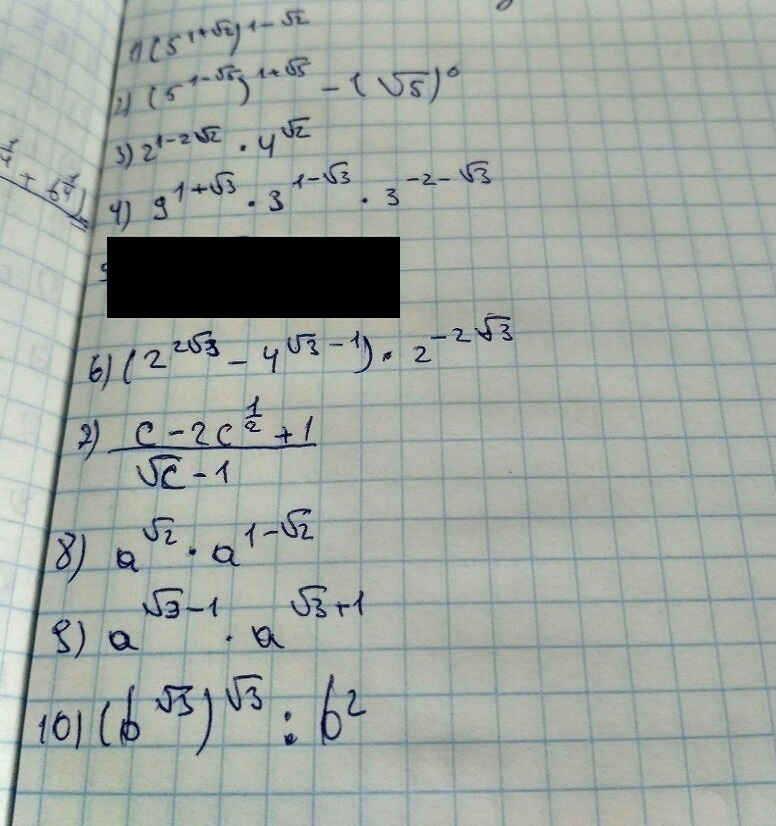 1) (5^{1+√2})^{1-√2}
2) (5^{1-√5})^{1+√5} - (√5)^0
3) 2^{1-2√2} · 4^{√2}
4) 9^{1+√3} · 3^{1-√3} · 3^{-2-√3}
6) (2^{2√3} - 4^{√3-1}) · 2^{-2√3}
7) \frac{c - 2c^{\frac{1}{2}} + 1}{√c - 1}
8) a^{√2} · a^{1-√2}
9) a^{√3-1} · a^{√3+1}
10) (b^{√3})^{√3} : b^2